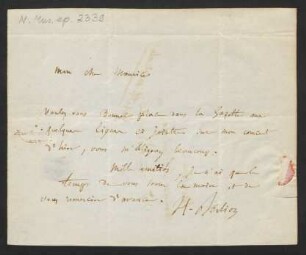 M. Mus. ep. 2330
Mon cher Maurice
Voulez vous donner place dans la Gazette aux
quelques lignes ci jointes sur mon concert
d'hier, vous m'obligerez beaucoup.
Mille amitiés, je n'ai que le
temps de vous serrer la main et de
vous remercier d'avance.
H. Berlioz